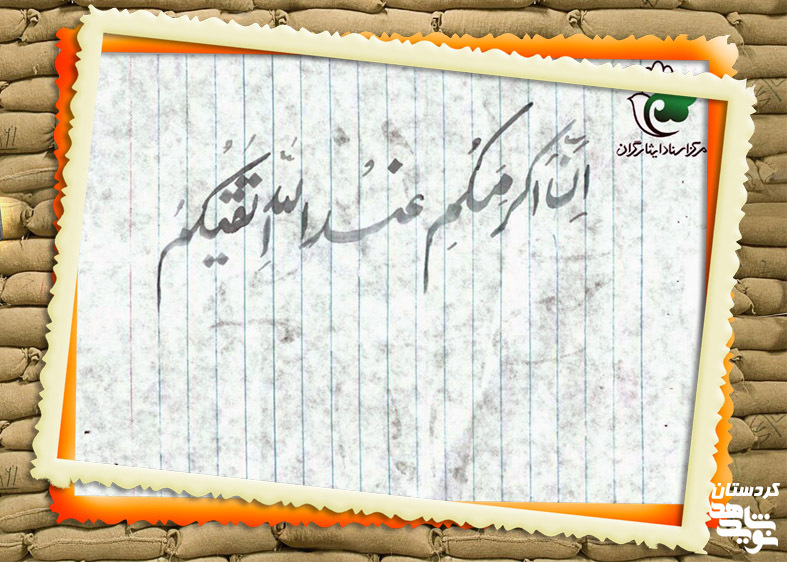 مرکز اسناد ایثارگران
اِنَّ اَکرَمَکُم عِندَ اللهِ اَتقیکُم
کردستان
نوید شاهد